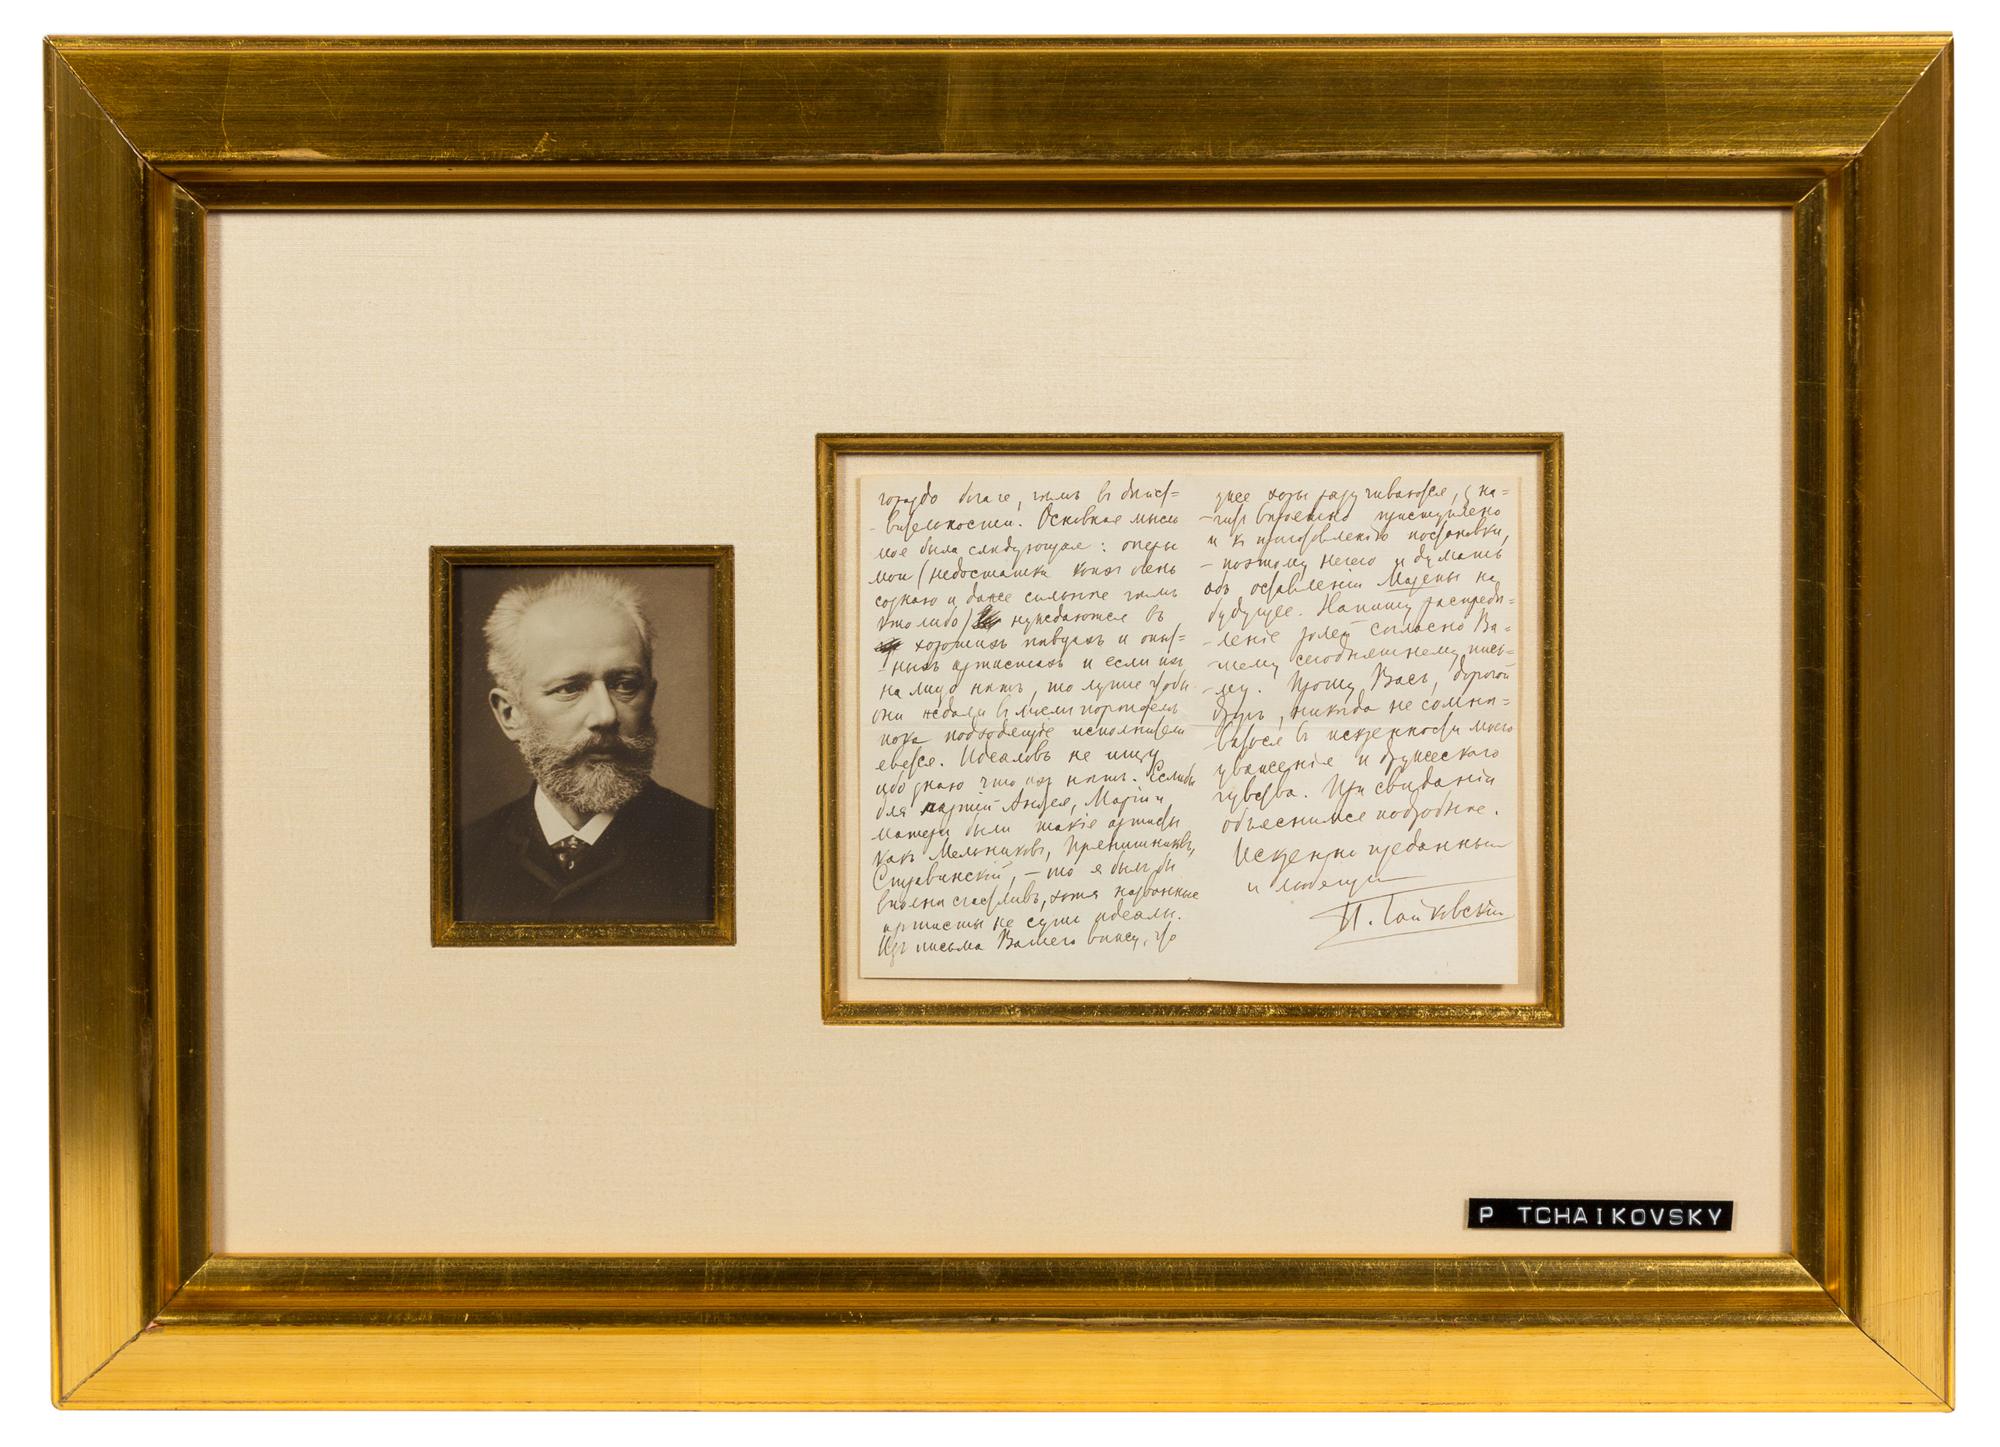 гораздо богаче, чѣмъ въ дѣйст=
-вительности. Основная мысль
моя была слѣдующая: оперы
мои (недостатки коихъ очень
сознаю и даже сильнѣе чѣмъ
кто либо) нуждаются въ
хорошихъ пѣвцахъ и опыт=
-ныхъ артистахъ и если ихъ
на лицо нѣтъ, то лучше чтобы
они
пока подходящіе исполнители
Идеаловъ не ищу
ибо знаю что ихъ нѣтъ. Еслибъ
для партій Андрея, Маріи и
матери были такіе артисты
какъ Мельниковъ, Прянишниковъ,
Стравинскій, – то я былъ бы
вполнѣ счастливъ, хотя названные
артисты не суть идеалы.
Изъ письма Вашего вижу, что
уже хоры разучиваются,
приступлено
и къ приготовленію постановки,
– поэтому нечего и думать
объ оставленіи Мазепы на
будущее. Напишу распредѣ=
-леніе ролей согласно Ва=
-шему сегодняшнему пись=
-му. Прошу Васъ, дорогой
другъ, никогда не сомнѣ=
-ваться въ искренности моего
уваженія и дружескаго
чувства. При свиданіи
объяснимся подробнѣе.
Искренно преданный
и любящій
П. Чайковскій
P TCHAIKOVSKY